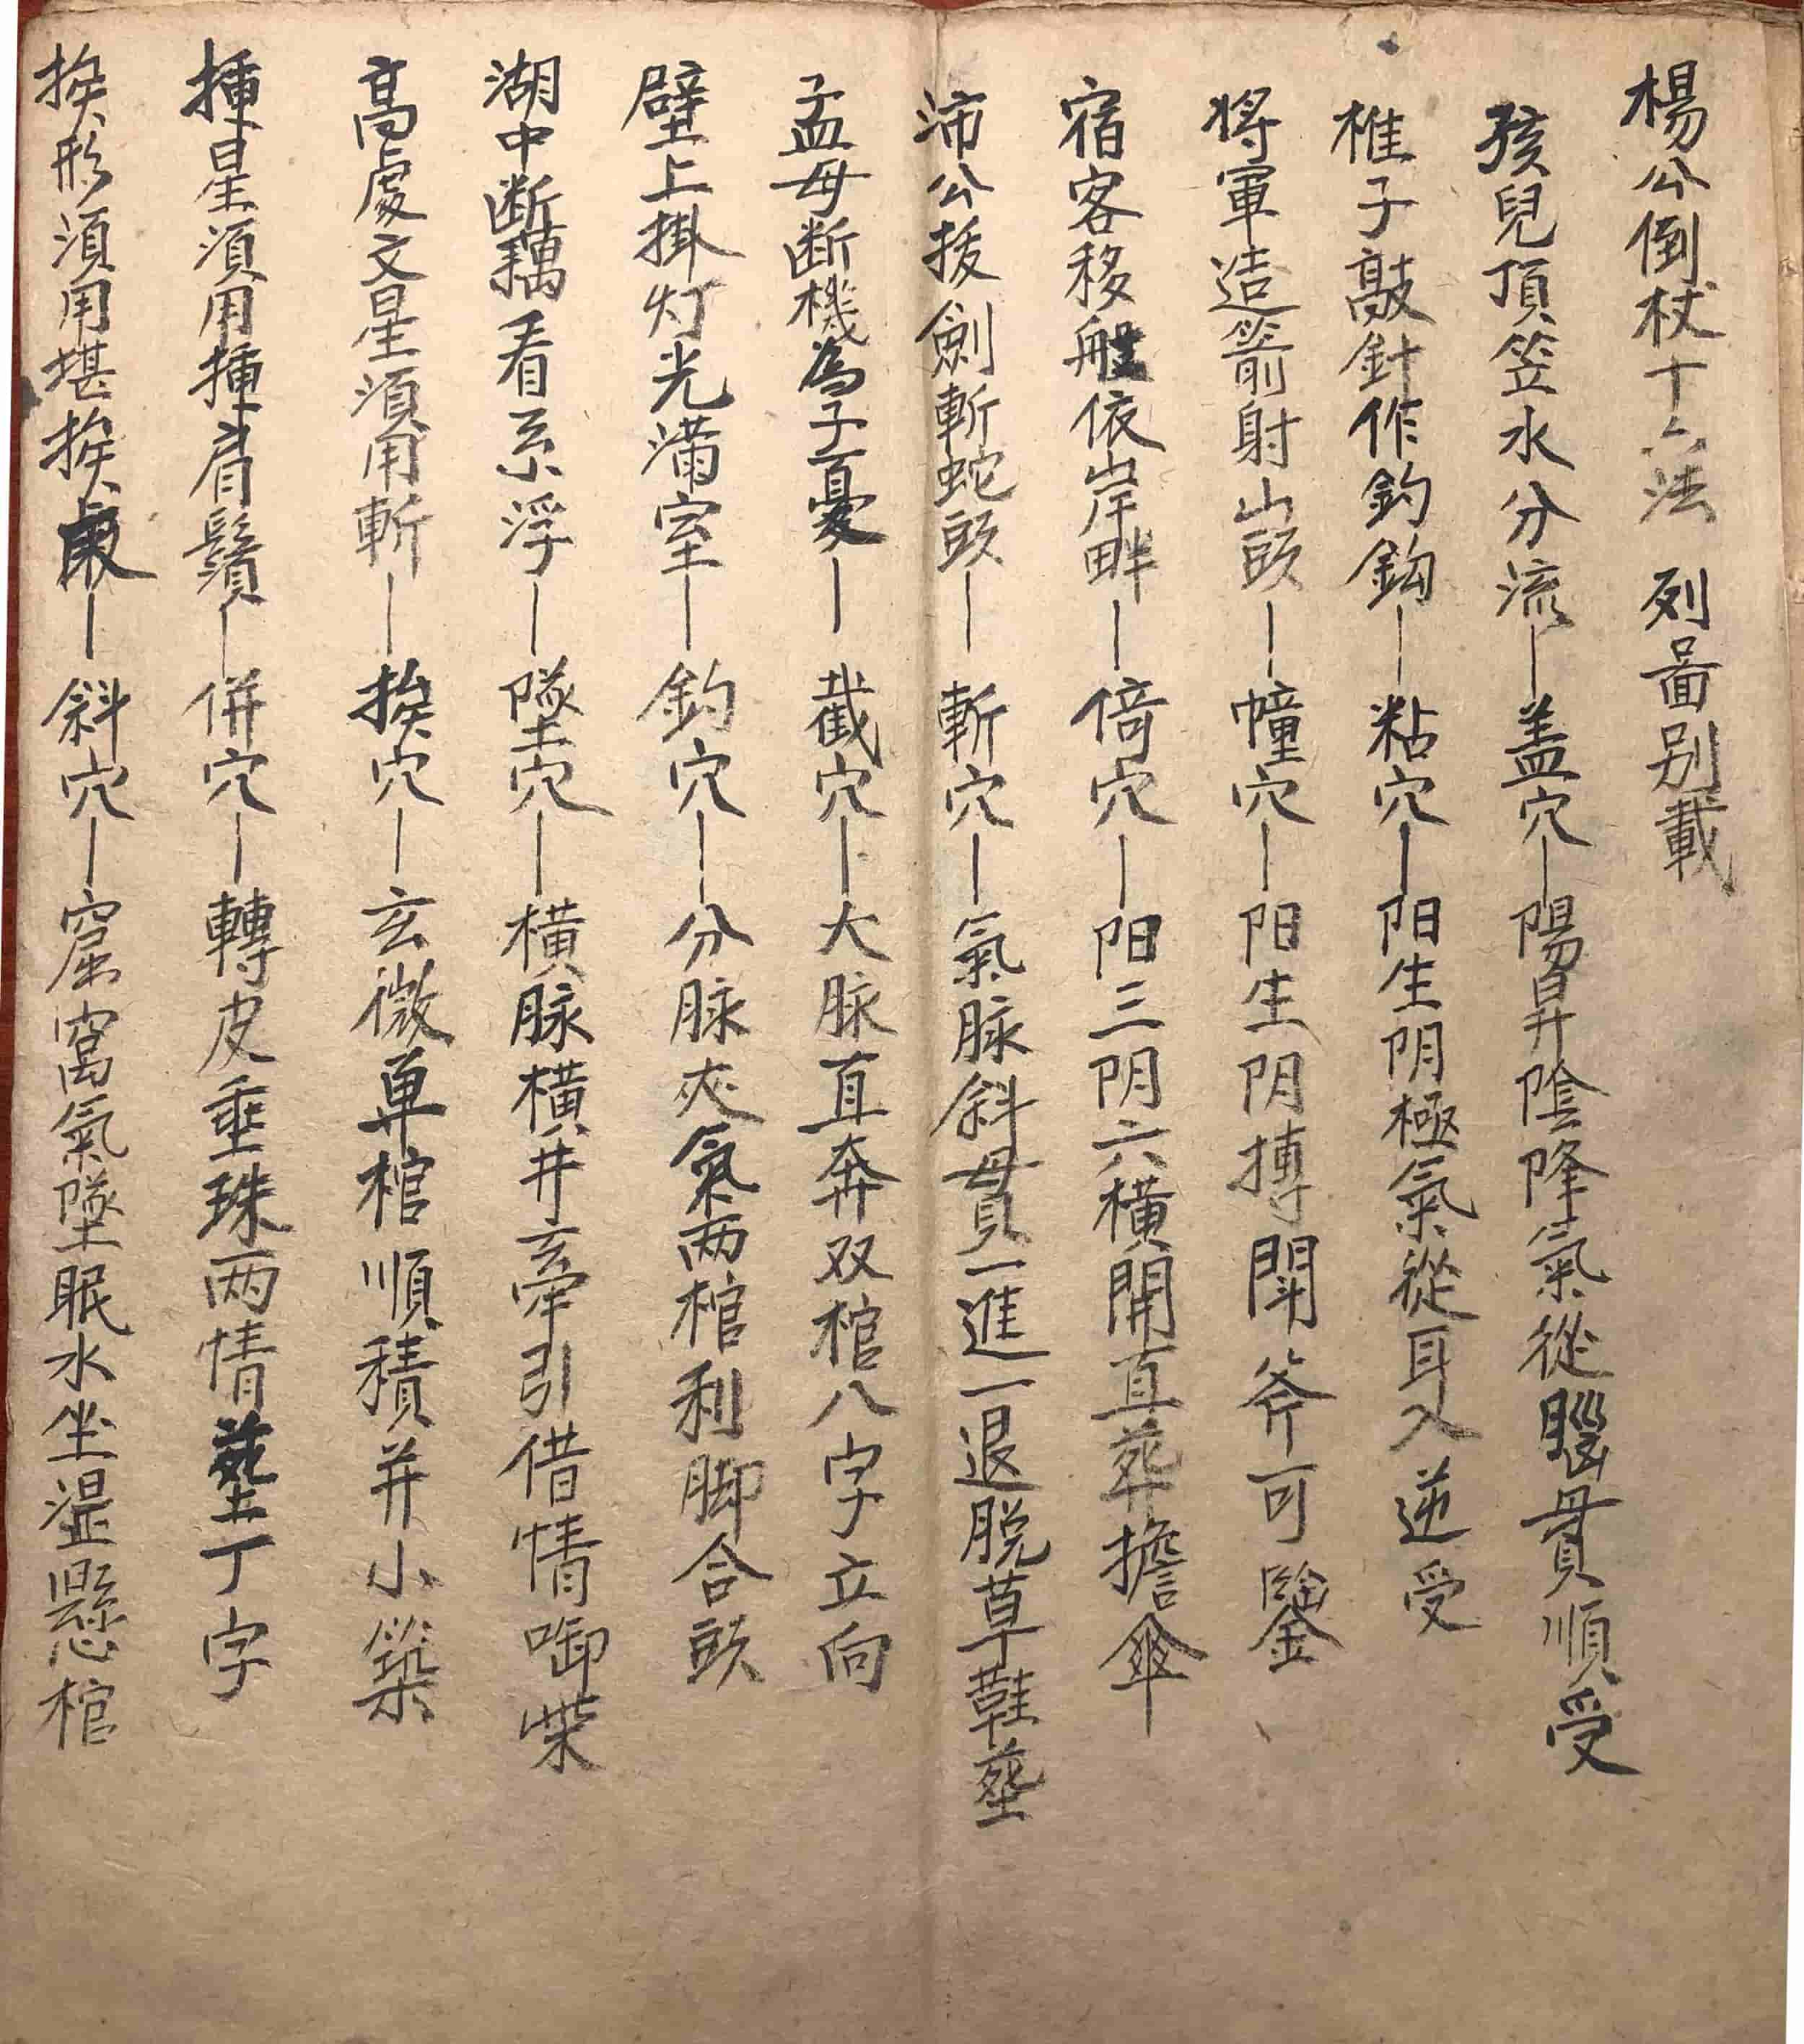 楊公倒杖十六法　列啚别載
孩兒頂笠水分流—盖穴—陽昇陰降氣從腦貫順受
椎子敲針作釣鈎—粘穴—阳生阴極氣從耳入逆受
将軍造箭射山頭—幢穴—阳生阴摶閗斧可鑿
宿客移船依岸畔—倚穴—阳三阴六横開直葬擔傘
沛公拔劍斬蛇頭—斬穴—氣脉斜貫一進一退脱草鞋塟
孟母断機為子憂—截穴—大脉直奔双棺八字立向
壁上掛灯光满室—釣穴—分脉夾氣两棺利脚合頭
湖中断藕看系浮—墜穴—横脉横井牽引借情啣柴
高處文星須用斬—挨穴—玄微单棺順積并小築
揷星須用揷肩鬚—併穴—轉皮垂珠两情塟丁字
挨形須用堪挨—斜穴—窟窩氣墜眠水坐湿懸棺